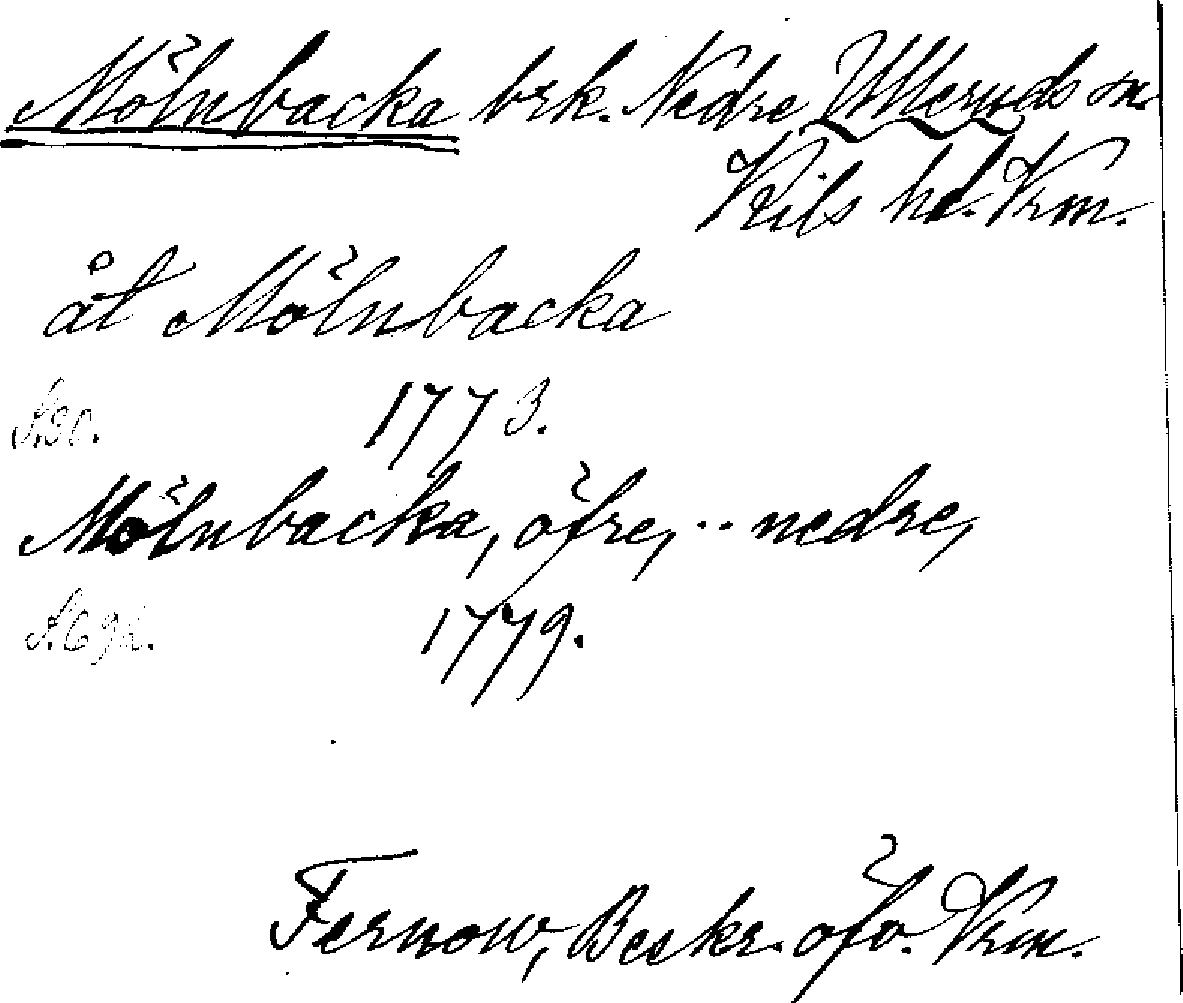 Mölnbacka brk. Nedre Ulleruds sn.
Kils hd. Vrm.
åt Mölnbacka
S.30. 1773.
Mölnbacka, öfre, .. nedre,
1779.
Fernow, Beskr. öfv. Vrm.